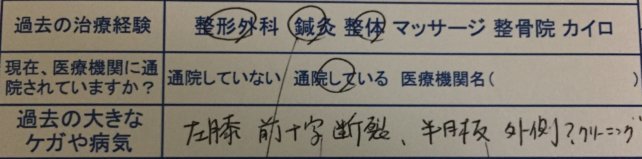 過去の治療経験 整形外科 鍼灸 整体 マッサージ 整骨院 カイロ
現在、医療機関に通
院されていますか? 通院していない 通院している 医療機関名( )
過去の大きな
ケガや病気 左膝 前十字断裂、半月板 外側?クリーニング